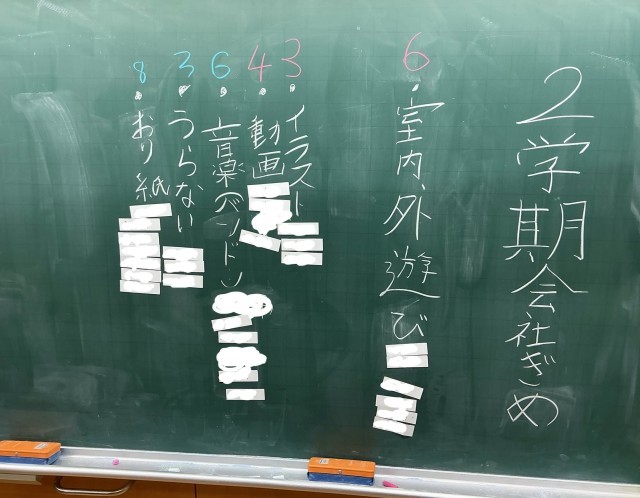 2学期会社ぎめ
6
・室内、外遊び
3
・イラスト
4
・動画
6
・音楽(バンド)
3
・うらない
8
・おり紙